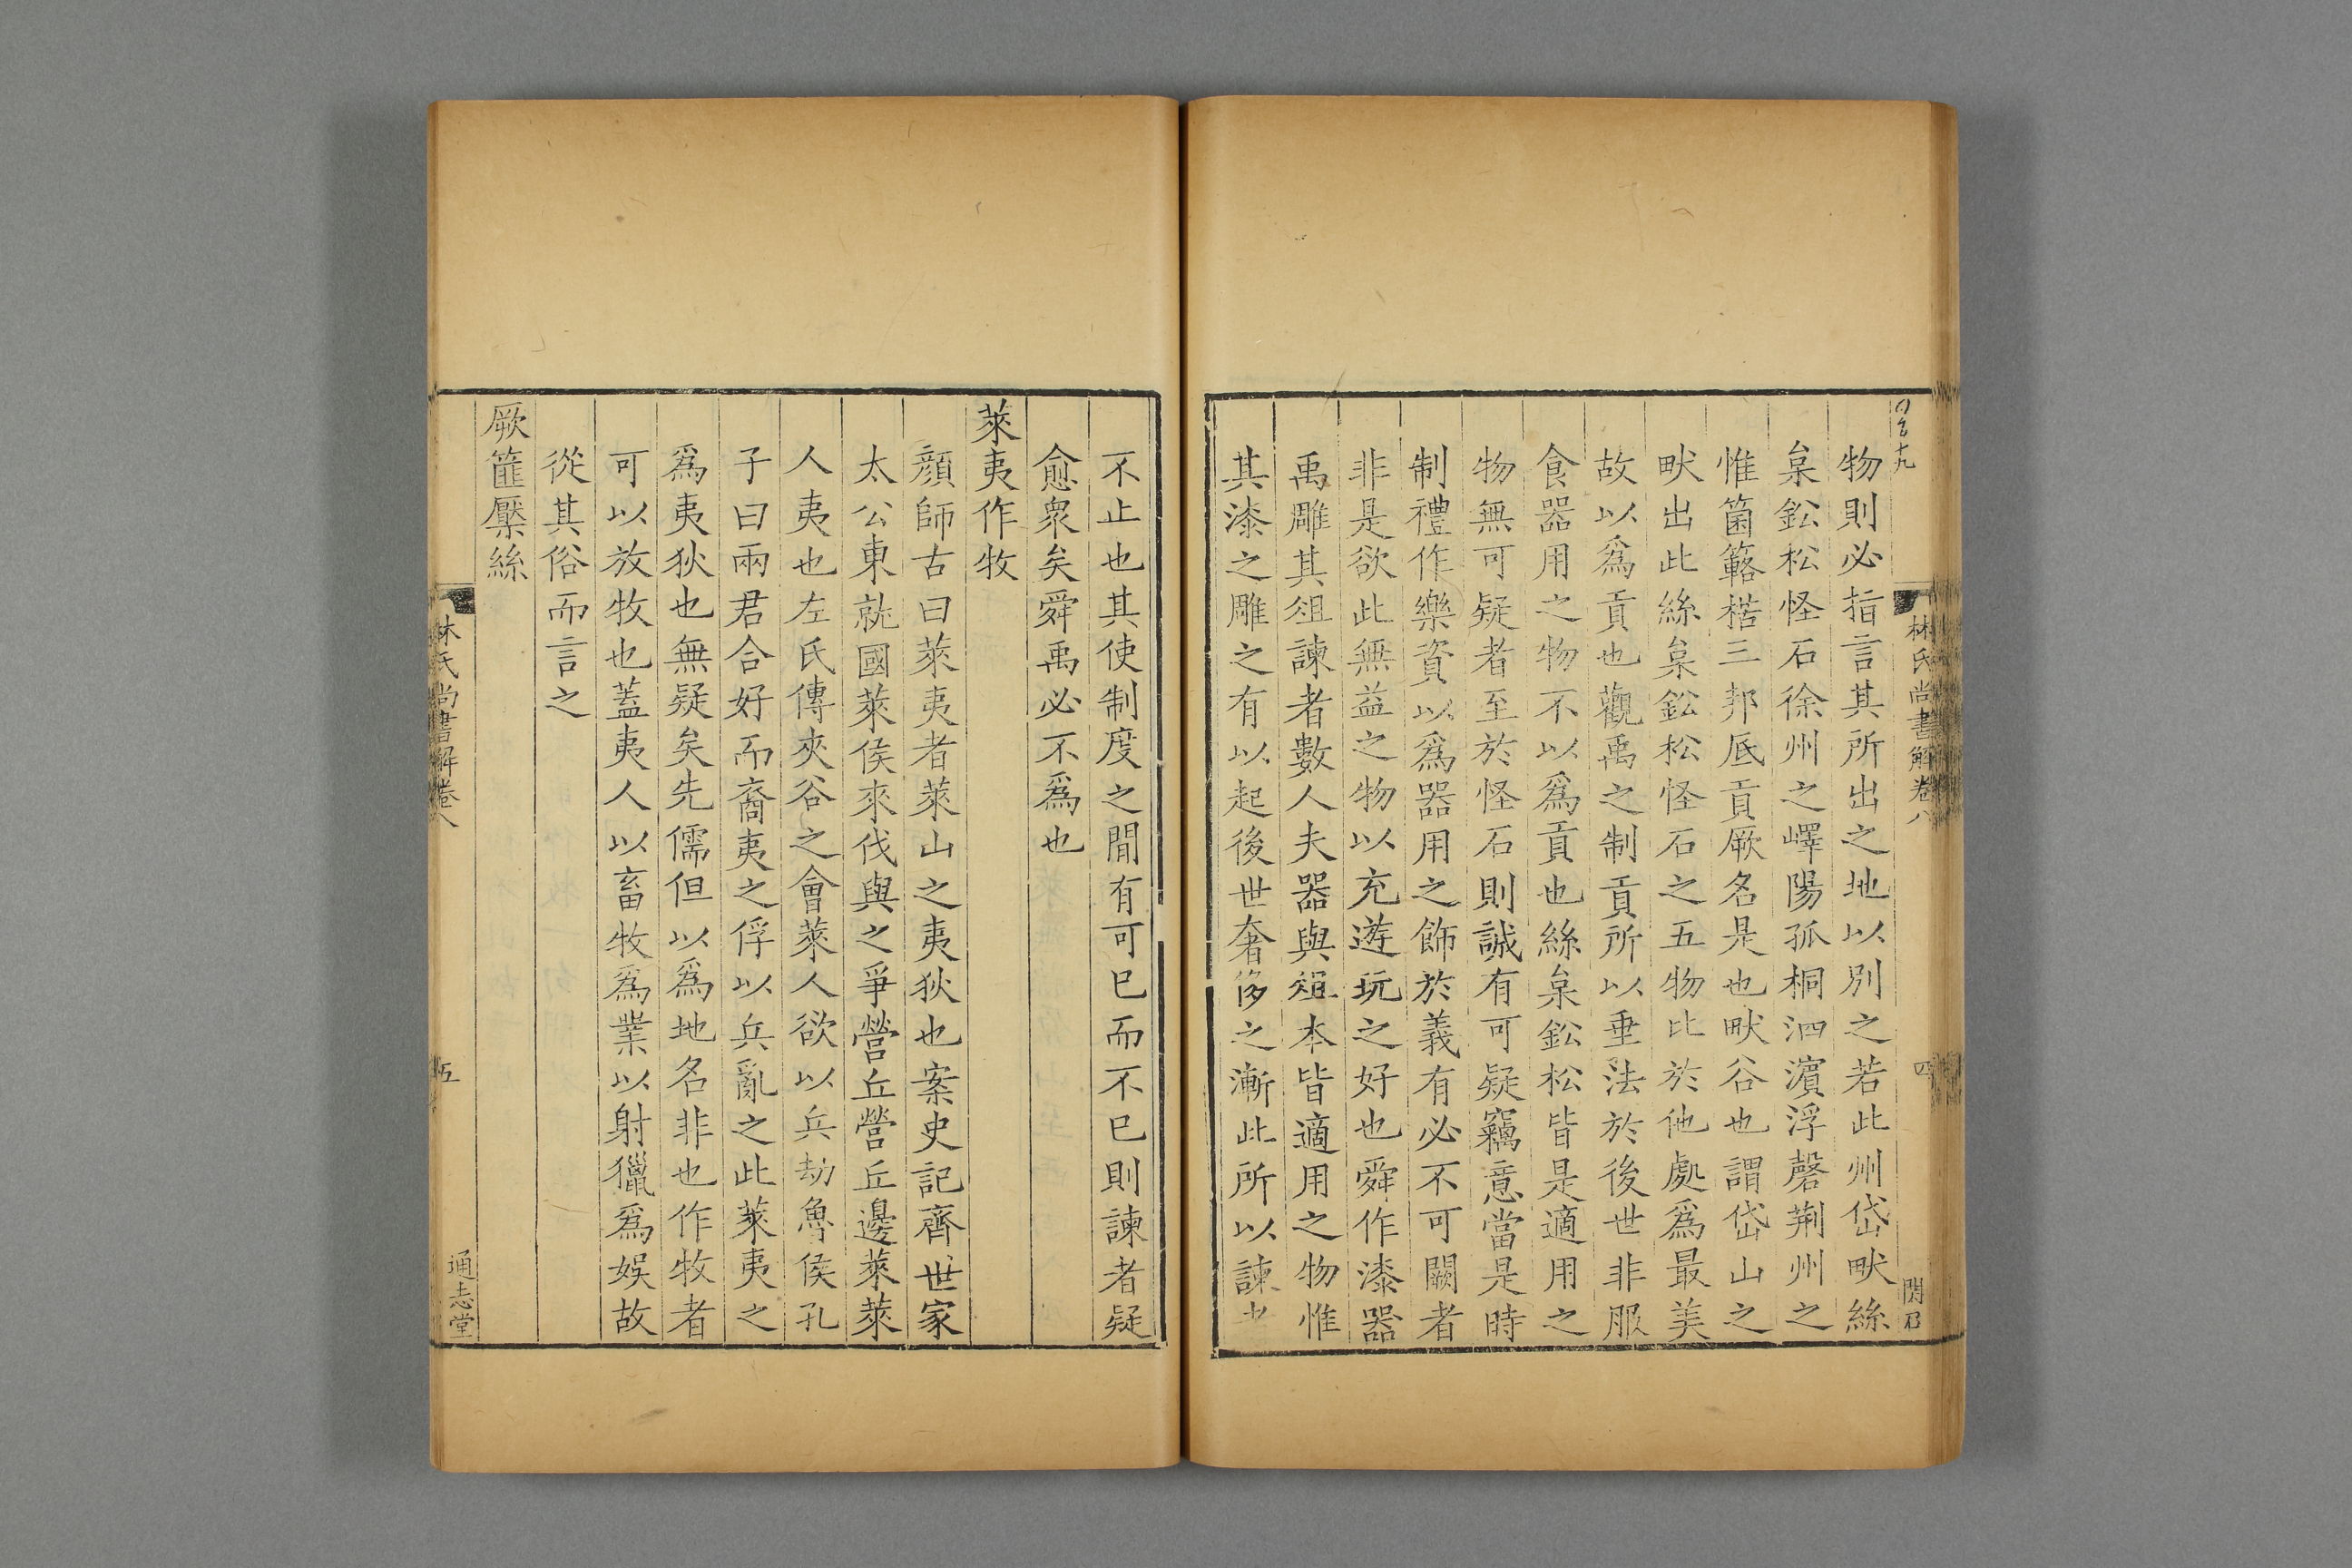 林氏尚書解卷八
四
物則必指言其所出之地以別之若此州岱畎絲
枲鈆松怪石徐州之嶧陽孤桐泗濱浮磬荆州之
惟箘簵楛三邦厎貢厥名是也畎谷也謂岱山之
畎出此絲枲鈆松怪石之五物比於他處爲最美
故以爲貢也觀禹之制貢所以垂法於後世非服
食器用之物不以爲貢也絲枲鈆松皆是適用之
物無可疑者至於怪石則誠有可疑竊意當是時
制禮作樂資以爲器用之飾於義有必不可闕者
非是欲此無益之物以充遊玩之好也舜作漆器
禹雕其俎諫者數人夫器與俎本皆適用之物惟
其漆之雕之有以起後世奢侈之漸此所以諫者
不止也其使制度之間有可已而不已則諫者疑
愈衆矣舜禹必不爲也
萊夷作牧
顏師古曰萊夷者萊山之夷狄也案史記齊世家
太公東就國萊侯來伐與之爭營丘營丘邊萊萊
人夷也左氏傳夾谷之會萊人欲以兵劫魯侯孔
子曰兩君合好而裔夷之俘以兵亂之此萊夷之
爲夷狄也無疑矣先儒但以爲地名非也作牧者
可以放牧也蓋夷人以畜牧爲業以射獵爲娛故
從其俗而言之
厥篚檿絲
林氏尚書解卷八
五
通志堂